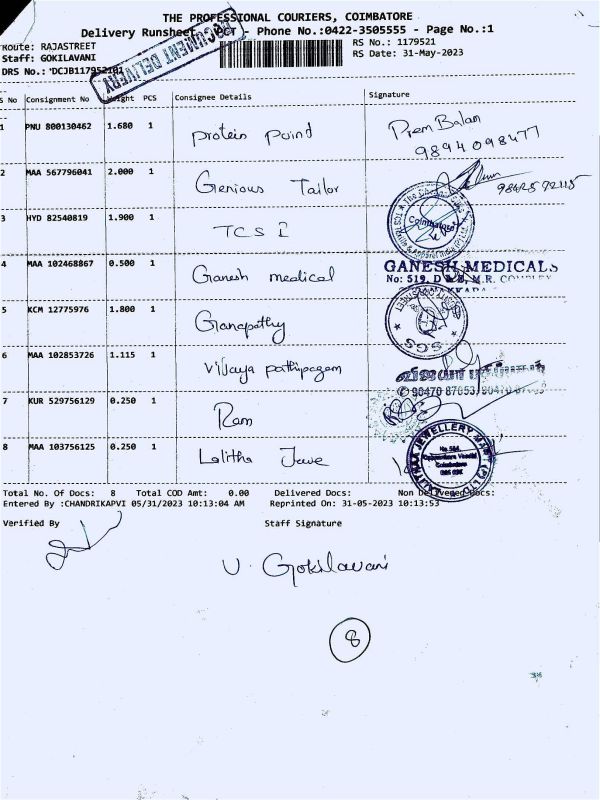 THE PROFESSIONAL COURIERS, COIMBATORE
Delivery Runsheet - PCT - Phone No.:0422-3505555 - Page No.:1
DOCUMENT DELIVERY
Route: RAJASTREET
RS No.: 1179521
Staff: GOKILAVANI
RS Date: 31-May-2023
DRS No.:
S No Consignment No Weight PCS Consignee Details Signature
1 PNU 800130462 1.680 1 protein point Prem Balan
9894098477
2 MAA 567796041 2.000 1 Genious Tailor
3 HYD 82540819 1.900 1 TCS I
Coimbatore
4 MAA 102468867 0.500 1 Ganesh medical GANESH MEDICALS
No: 519, M.R. COMPLEX
5 KCM 12775976 1.800 1 Ganapathy
SGS
6 MAA 102853726 1.115 1 Vijaya pathipagam விஜயா பதிப்பகம்
90470 87053
7 KUR 529756129 0.250 1 Ram
8 MAA 103756125 0.250 1 Lalitha Jewe
JEWELLERY MART (P) LTD
Coimbatore
Total No. Of Docs: 8 Total COD Amt: 0.00 Delivered Docs: Non Delivered Docs:
Entered By :CHANDRIKAPVI 05/31/2023 10:13:04 AM Reprinted On: 31-05-2023 10:13:53
Verified By Staff Signature
V. Gokilavani
8